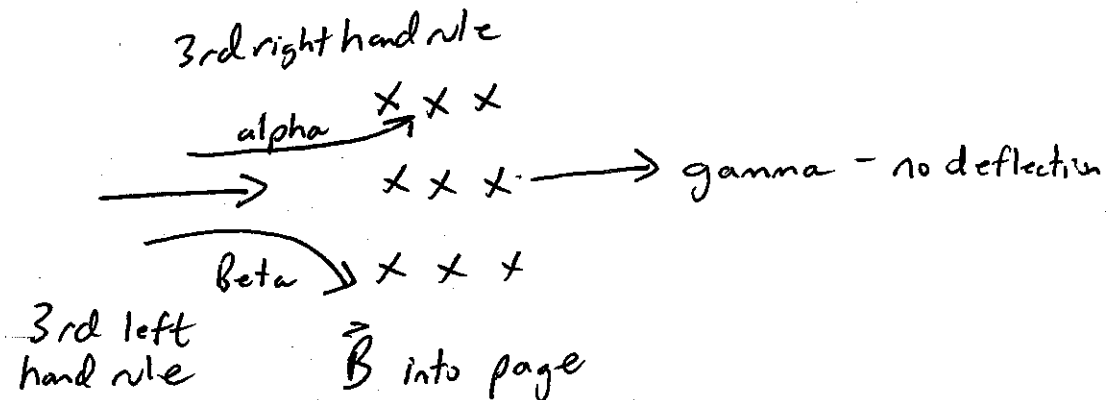 3rd right hand rule
X X X
alpha
X X X
gamma - no deflection
Beta
X X X
3rd left
hand rule
B⃗ into page